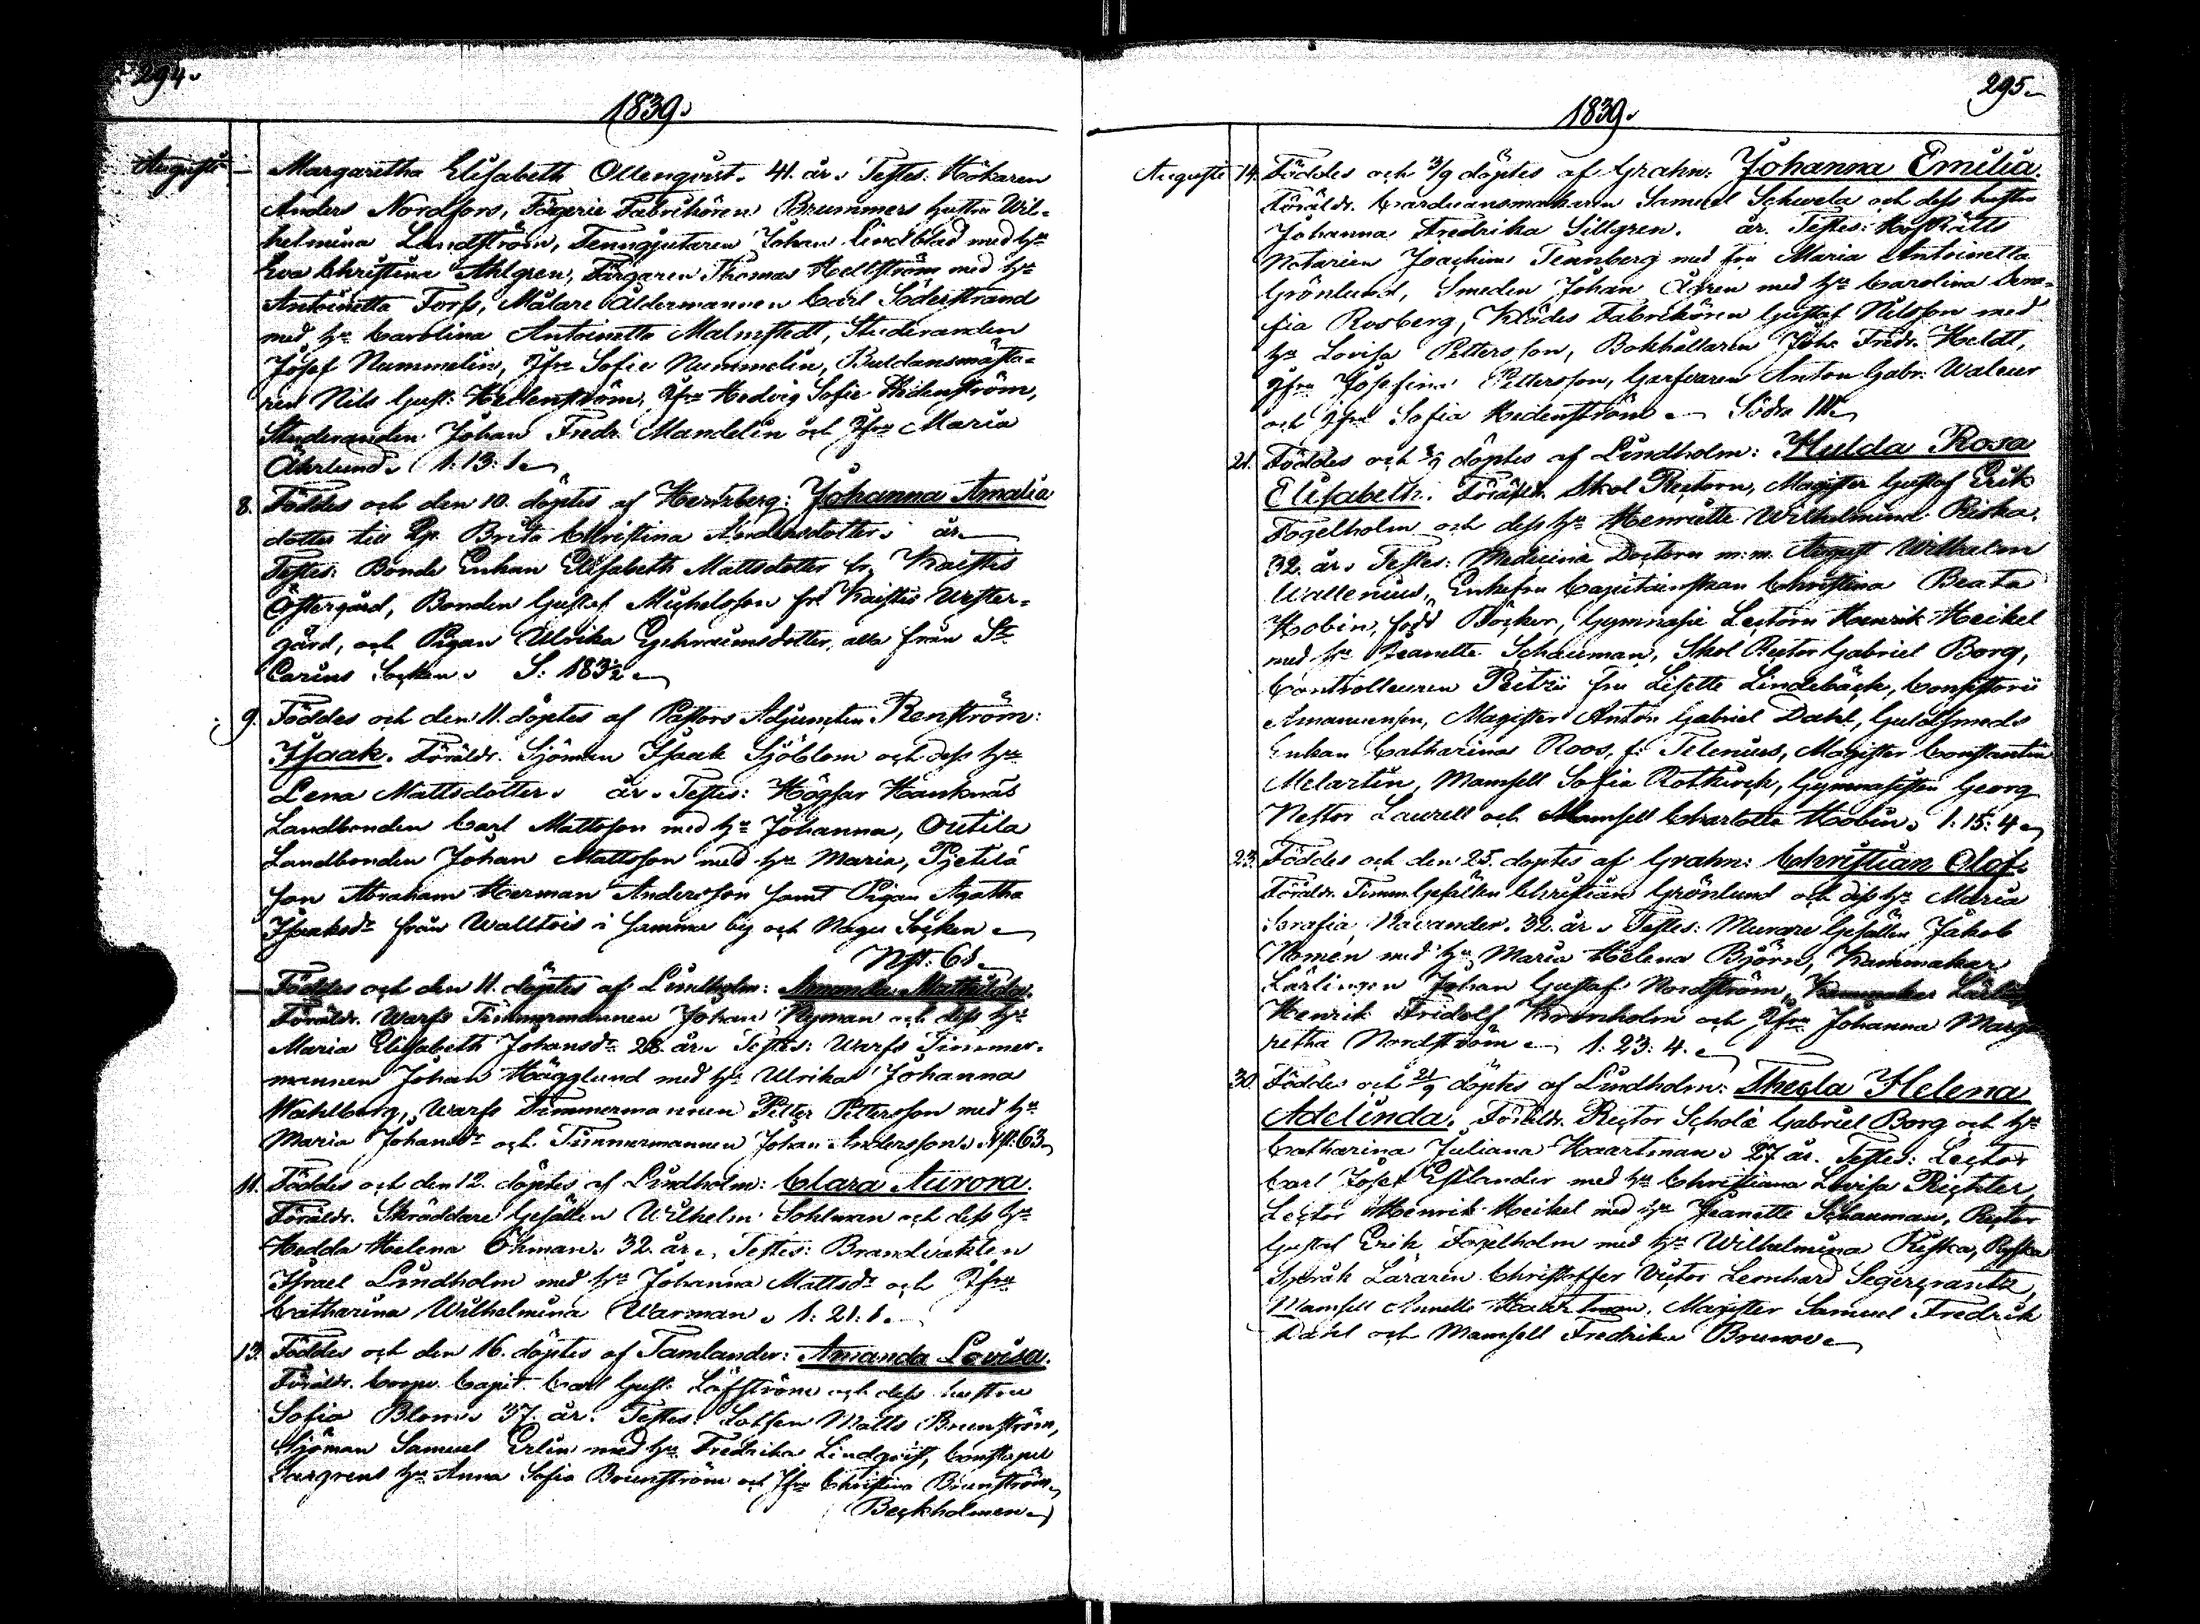 294.
1839.
Augusti
Margaretha Elisabeth Ollenqvist. 41. år. Testes: Hökaren
Anders Nordfors, Fabrikören Brummers hustru Wil-
helmina Lundström, Tenngjutaren Johan Lindblad med hu
Eva Christina Ahlgren, Färgaren Thomas Hellström med hu
Antoinetta Forss, Målare Åldermannen Carl Söderstrand
med hu Carolina Antoinetta Malmstedt, Studeranden
Josef Nummelin, Jfru Sofie Nummelin, Buldansmästa-
ren Nils Gust. Hedenström, Jfru Hedvig Sofie Hedenström,
Studeranden Johan Fredr. Mandelin och Jfru Maria
1. 13: 1.
8. Föddes och den 10. döptes af Hertzberg: Johanna Amalia
dotter till Pig. Brita Christina Andersdotter. år.
Testes: Bonde Enkan Elisabeth Mattsdotter fr. Kaistis
Östergård, Bonden Gustaf Michelsson frå Kaistis Wester-
gård, och Pigan Ulrika Ephraimsdotter, alla från St
Carins Socken. S: 183½
9. Föddes och den 11. döptes af Pastors Adjuncten Renström:
Isaak. Föräldr. Sjöman Isaak Sjöblom och dess hu
Lena Mattsdotter. år. Testes: Högsar Hanknäs
Landbonden Carl Mattsson med hu Johanna, Outila
Landbonden Johan Mattsson med hu Maria, Pjetilä
son Abraham Herman Andersson samt Pigan Agatha
Isaksdr från Walltois i samma by och Nagu Socken
N. 68.
Föddes och den 11. döptes af Lindholm: Amanda Mathilda.
Föräldr. Warfs Timmermannen Johan Nyman och dess hu
Maria Elisabeth Johansdr 28. år. Testes: Warfs Timmer-
mannen Johan Hägglund med hu Ulrika Johanna
Wahlberg, Warfs Timmermannen Petter Pettersson med hu
Maria Johansdr och Timmermannen Johan Andersson. N. 63
11. Föddes och den 12. döptes af Lindholm: Clara Aurora.
Föräldr. Skräddare Gesällen Wilhelm Sohlman och dess hu
Hedda Helena Öhman. 32. år. Testes: Brandvakten
Israel Lindholm med hu Johanna Mattsdr och Jfru
Catharina Wilhelmina Warman. 1. 21. 1.
13. Föddes och den 16. döptes af Tamlander: Amanda Lovisa.
Föräldr. Capit. Carl Gust. Löfström och dess hustru
Sofia Blom. 37. år. Testes: Lotsen Matts Brunström,
Sjöman Samuel Erlin med hu Fredrika Lindqvist, Constapel
hu Anna Sofia Brunström och Jfru Christina Brunström
Beckholmen
295.
1839.
Augusti 14. Föddes och 3/9 döptes af Grahn: Johanna Emilia.
Föräldr. Carduansmakaren Samuel Schwela och dess hustru
Johanna Fredrika Sillgren. år. Testes: HofRätts
Notarien Joachim Tennberg med fru Maria Antoinetta
Grönlund, Smeden Johan Ågren med hu Carolina
fia Rosberg, Klädes Fabrikören Gustaf Nilsson med
hu Lovisa Pettersson, Bokhållaren Joh. Fredr. Heldt,
Jfru Josefina Pettersson, Garfvaren Anton Gabr. Waleur
och Jfru Sofia Hedenström. Södra
21. Föddes och 3/9 döptes af Lindholm: Hulda Rosa
Elisabeth. Föräldr. Skol Rectorn, Magister Gustaf Erik
Fogelholm och dess hu Henriette Wilhelmina Riska.
32. år. Testes: Medicine Doctorn m.m. August Wilhelm
Wallenius, Enkefru Capitainskan Christina Beata
Hobin, född Böcker, Gymnasie Lectorn Henrik Heikel
med hu Jeanette Schauman, Skol Rector Gabriel Borg,
Controlleuren Petrii fru Lisette Lindebäck, Consistorii
Amanuensen, Magister Anton Gabriel Dahl, Guldsmeds
Enkan Catharina Roos, f. Telenius, Magister Constantin
Melartin, Mamsell Sofia Rotkirch, Gymnasisten Georg
Nestor Laurell och Mamsell Charlotta Hobin. 1. 15: 4.
23. Föddes och den 25. döptes af Grahn: Christian Olof.
Föräldr. Timm.Gesällen Christian Grönlund och dess hu Maria
Serafia Navander. 32. år. Testes: Murare Gesällen Jakob
Nomen med hu Maria Helena Björn, Kammakar
Lärlingen Johan Gustaf Nordström,
Henrik Fridolf Kronholm och Jfru Johanna Marga
retha Nordström. 1. 23: 4.
30. Föddes och 21/9 döptes af Lindholm: Thecla Helena
Adelinda. Föräldr. Rector Scholæ Gabriel Borg och hu
Catharina Juliana Haartman. 27 år. Testes: Lector
Carl Josef Estlander med hu Christiana Lovisa Richter,
Lector Henrik Heikel med hu Jeanette Schauman, Rector
Gustaf Erik Fogelholm med hu Wilhelmina Riska, Ryska
Språk Läraren Christoffer Victor Leonhard Segercrantz,
Mamsell Annette Haartman, Magister Samuel Fredrik
Dahl och Mamsell Fredrika Brunow.